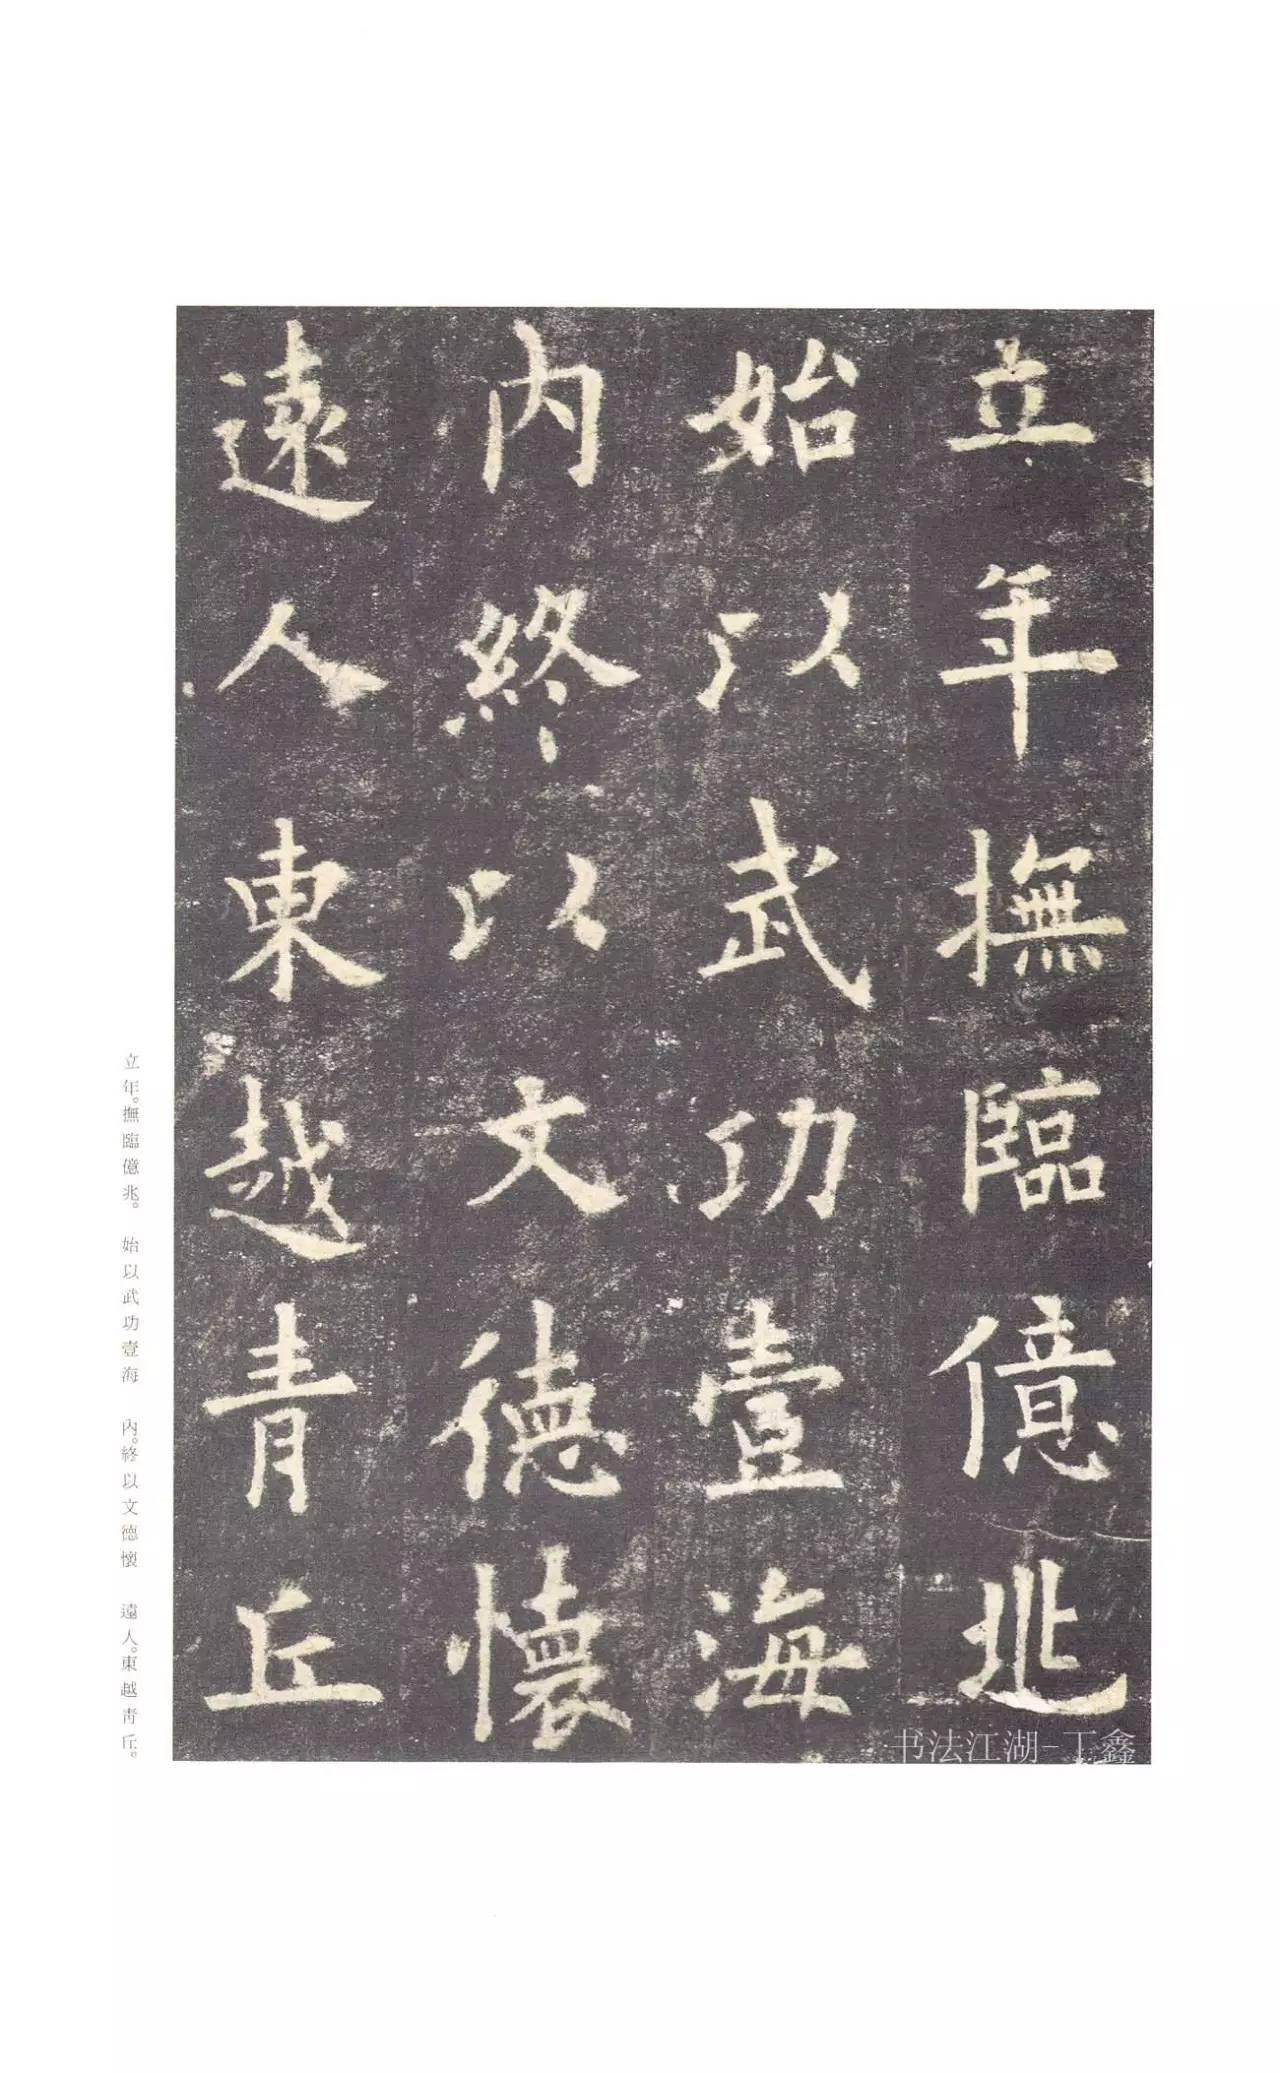 立年撫臨億兆
始以武功壹海
內終以文德懷
遠人東越青丘
立年。撫臨億兆。 始以武功壹海 內。終以文德懷 遠人。東越青丘。
书法江湖-丁鑫